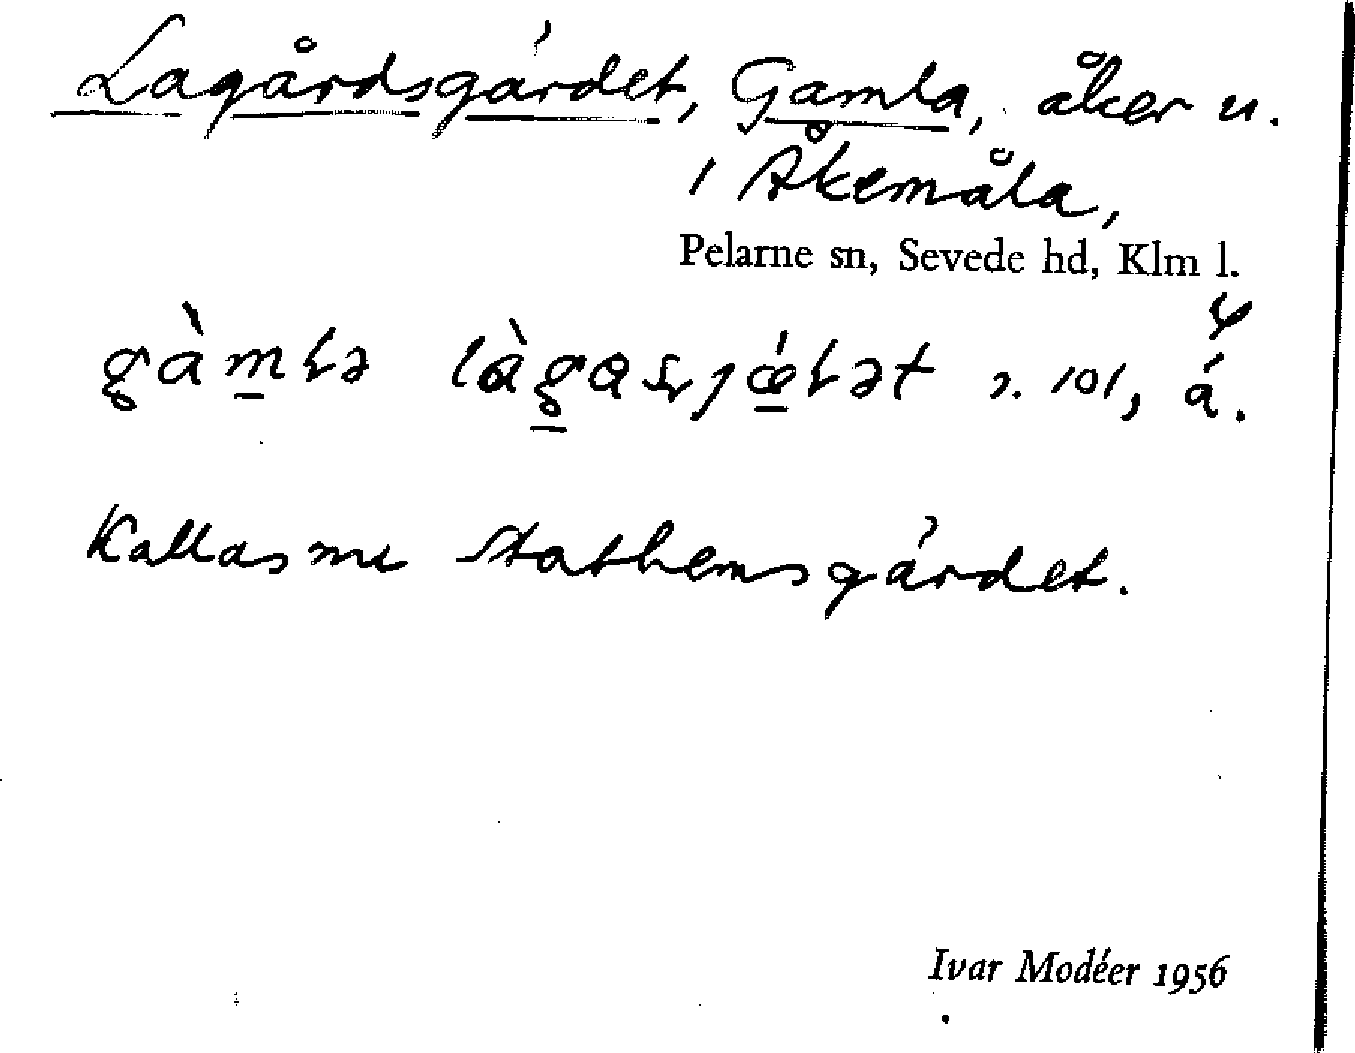 Lagårdsgärdet, Gamla, åker u.
1 Åkemåla,
Pelarne sn, Sevede hd, Klm l.
101, á.
Kallas nu Stathemsgärdet.
Ivar Modéer 1956